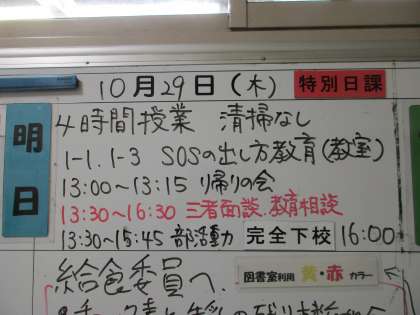 10月29日(木) 特別日課
明日
4時間授業 清掃なし
1-1.1-3 SOSの出し方教育(教室)
13:00～13:15 帰りの会
13:30～16:30 三者面談.教育相談
13:30～15:45 部活動 完全下校 16:00
給食委員へ.
図書室利用 黄・赤 カラー